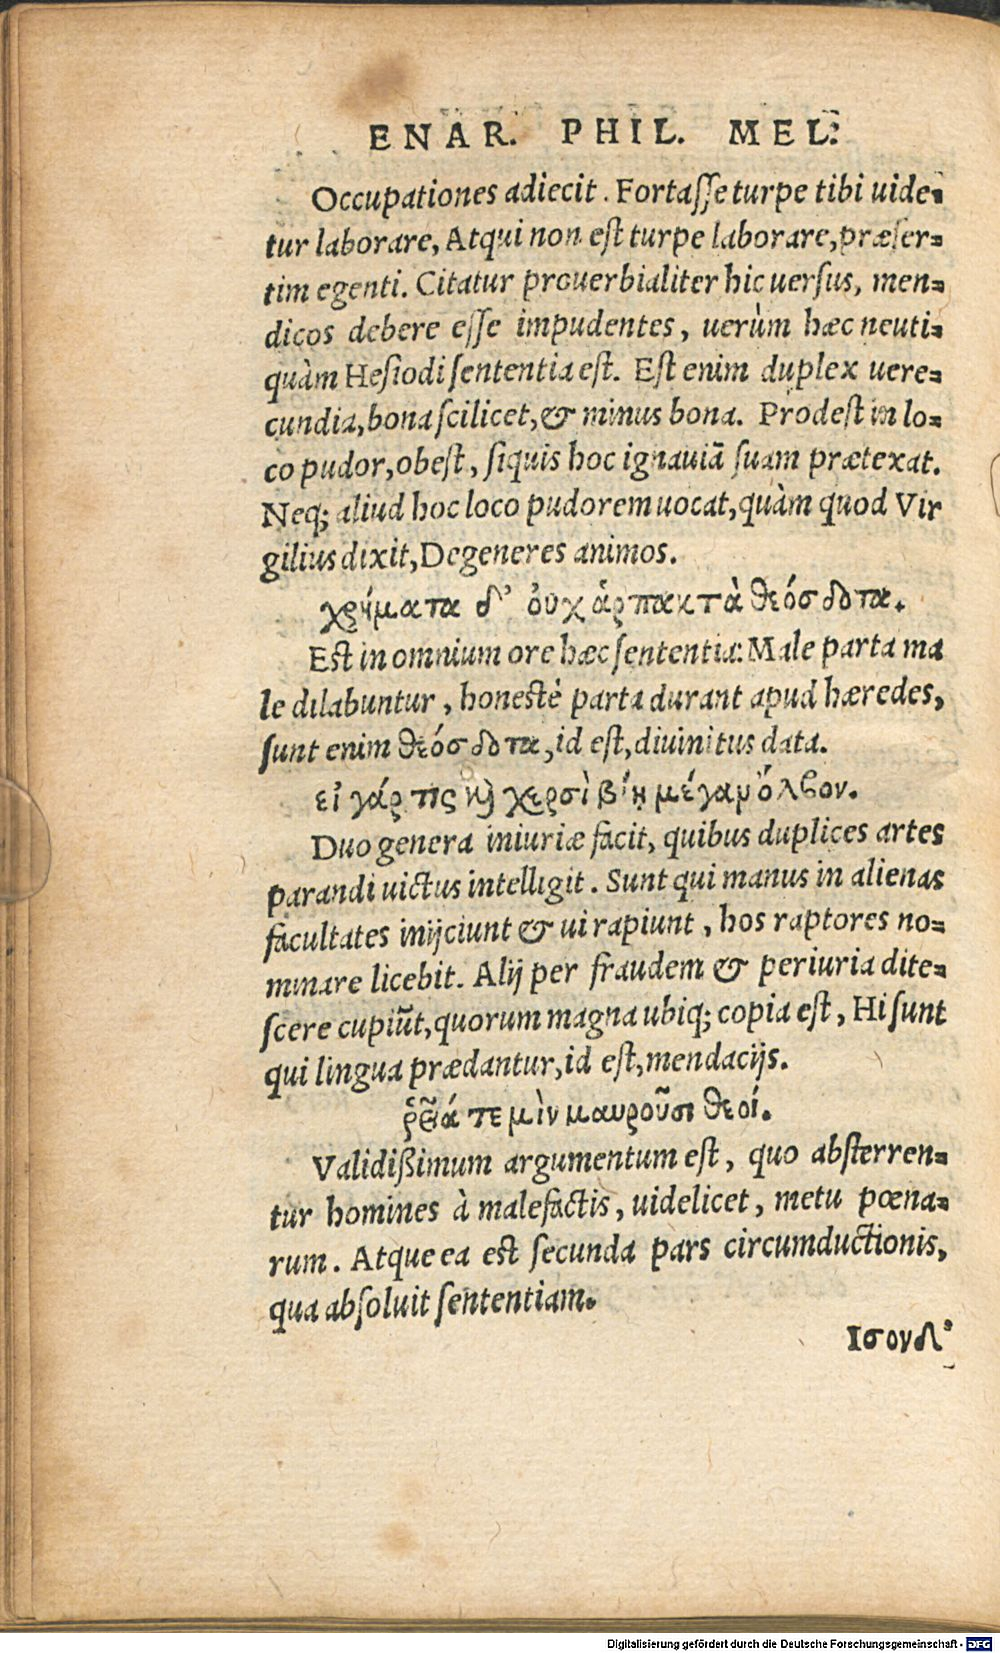 ENAR. PHIL. MEL.
Occupationes adiecit. Fortaſſe turpe tibi uide-
tur laborare, Atqui non eſt turpe laborare, præſer-
tim egenti. Citatur prouerbialiter hic uerſus, men-
dicos debere eſſe impudentes, uerùm hæc neuti-
quàm Heſiodi ſententia eſt. Eſt enim duplex uere-
cundia, bona ſcilicet, & minus bona. Prodeſt in lo-
co pudor, obeſt, ſiquis hoc ignauiā ſuam prætexat.
Neq; aliud hoc loco pudorem uocat, quàm quod Vir
gilius dixit, Degeneres animos.
χρήματα δ' οὐχ ἁρπακτὰ θεόσδοτα.
Eſt in omnium ore hæc ſententia: Male parta ma
le dilabuntur, honeſtè parta durant apud hæredes,
ſunt enim θεόσδοτα, id eſt, diuinitus data.
εἰ γάρ τις καὶ χερσὶ βίῃ μέγαν ὄλβον.
Duo genera iniuriæ facit, quibus duplices artes
parandi uictus intelligit. Sunt qui manus in alienas
facultates inijciunt & ui rapiunt, hos raptores no-
minare licebit. Alij per fraudem & periuria dite-
ſcere cupiūt, quorum magna ubiq; copia eſt, Hi ſunt
qui lingua prædantur, id eſt, mendacijs.
ῥεῖά τε μὶν μαυροῦσι θεοί.
Validißimum argumentum eſt, quo abſterren-
tur homines à malefactis, uidelicet, metu pœna-
rum. Atque ea eſt ſecunda pars circumductionis,
qua abſoluit ſententiam.
Ισον δ'
Digitalisierung gefördert durch die Deutsche Forschungsgemeinschaft - DFG